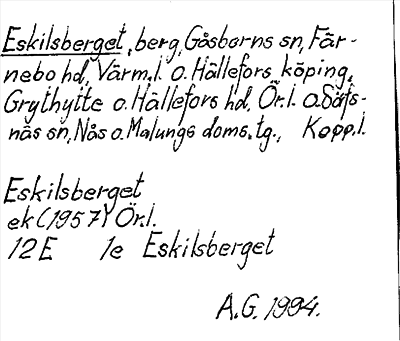 Eskilsberget, berg, Gåsborns sn, Fär-
nebo hd, Värm.l. o. Hällefors köping,
Grythytte o. Hällefors hd, Ör.l. o. Säfs-
näs sn, Nås o. Malungs doms.tg., Kopp.l.
Eskilsberget
ek (1957) Ör.l.
12E 1e Eskilsberget
A.G. 1994.